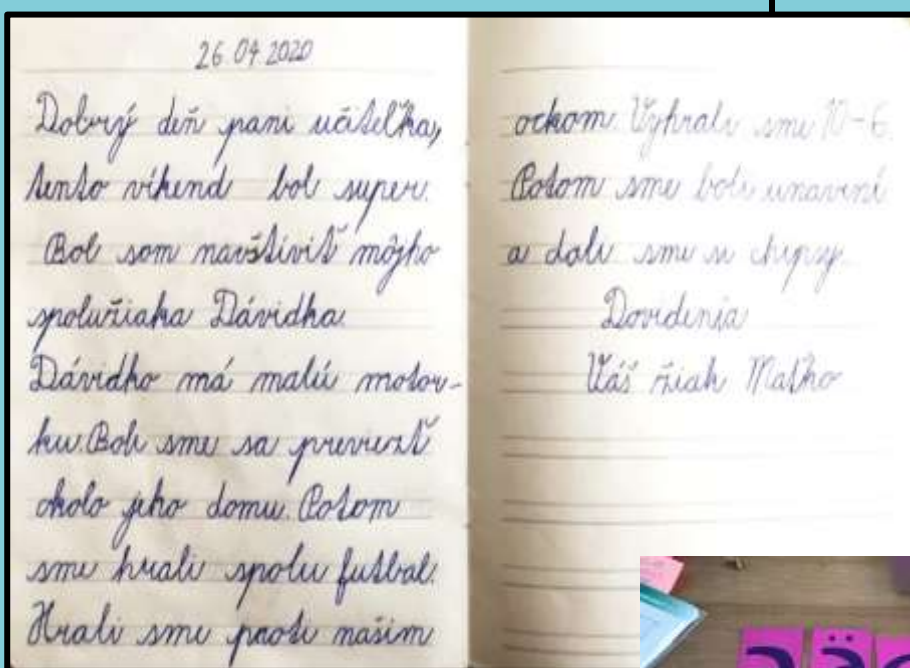 26.04.2020
Dobrý deň pani učiteľka,
tento víkend bol super.
Bol som navštíviť môjho
spolužiaka Dávidka.
Dávidko má malú motor-
ku. Boli sme sa previezť
okolo jeho domu. Potom
sme hrali spolu futbal.
Hrali sme proti našim
ockom. Vyhrali sme 10-6.
Potom sme boli unavení
a dali sme si chipsy.
Dovidenia
Váš žiak Maťko